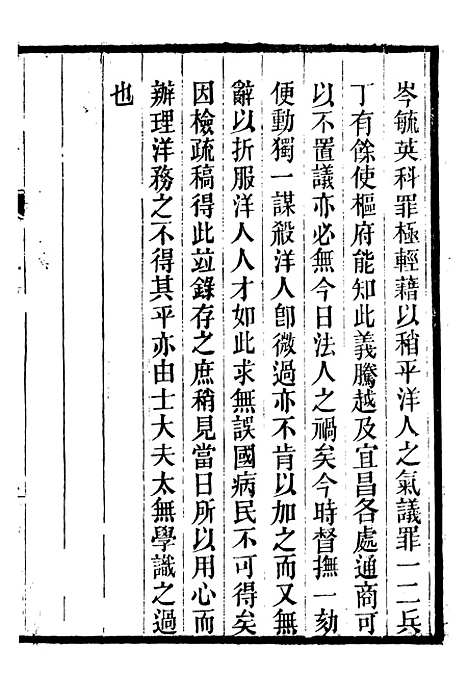 岑毓英科罪極輕藉以稍平洋人之氣議罪一二兵
丁有餘使樞府能知此義騰越及宜昌各處通商可
以不置議亦必無今日法人之禍矣今時督撫一劾
便動獨一謀殺洋人卽微過亦不肯以加之而又無
辭以折服洋人人才如此求無誤國病民不可得矣
因檢疏稿得此並錄存之庶稍見當日所以用心而
辦理洋務之不得其平亦由士大夫太無學識之過
也